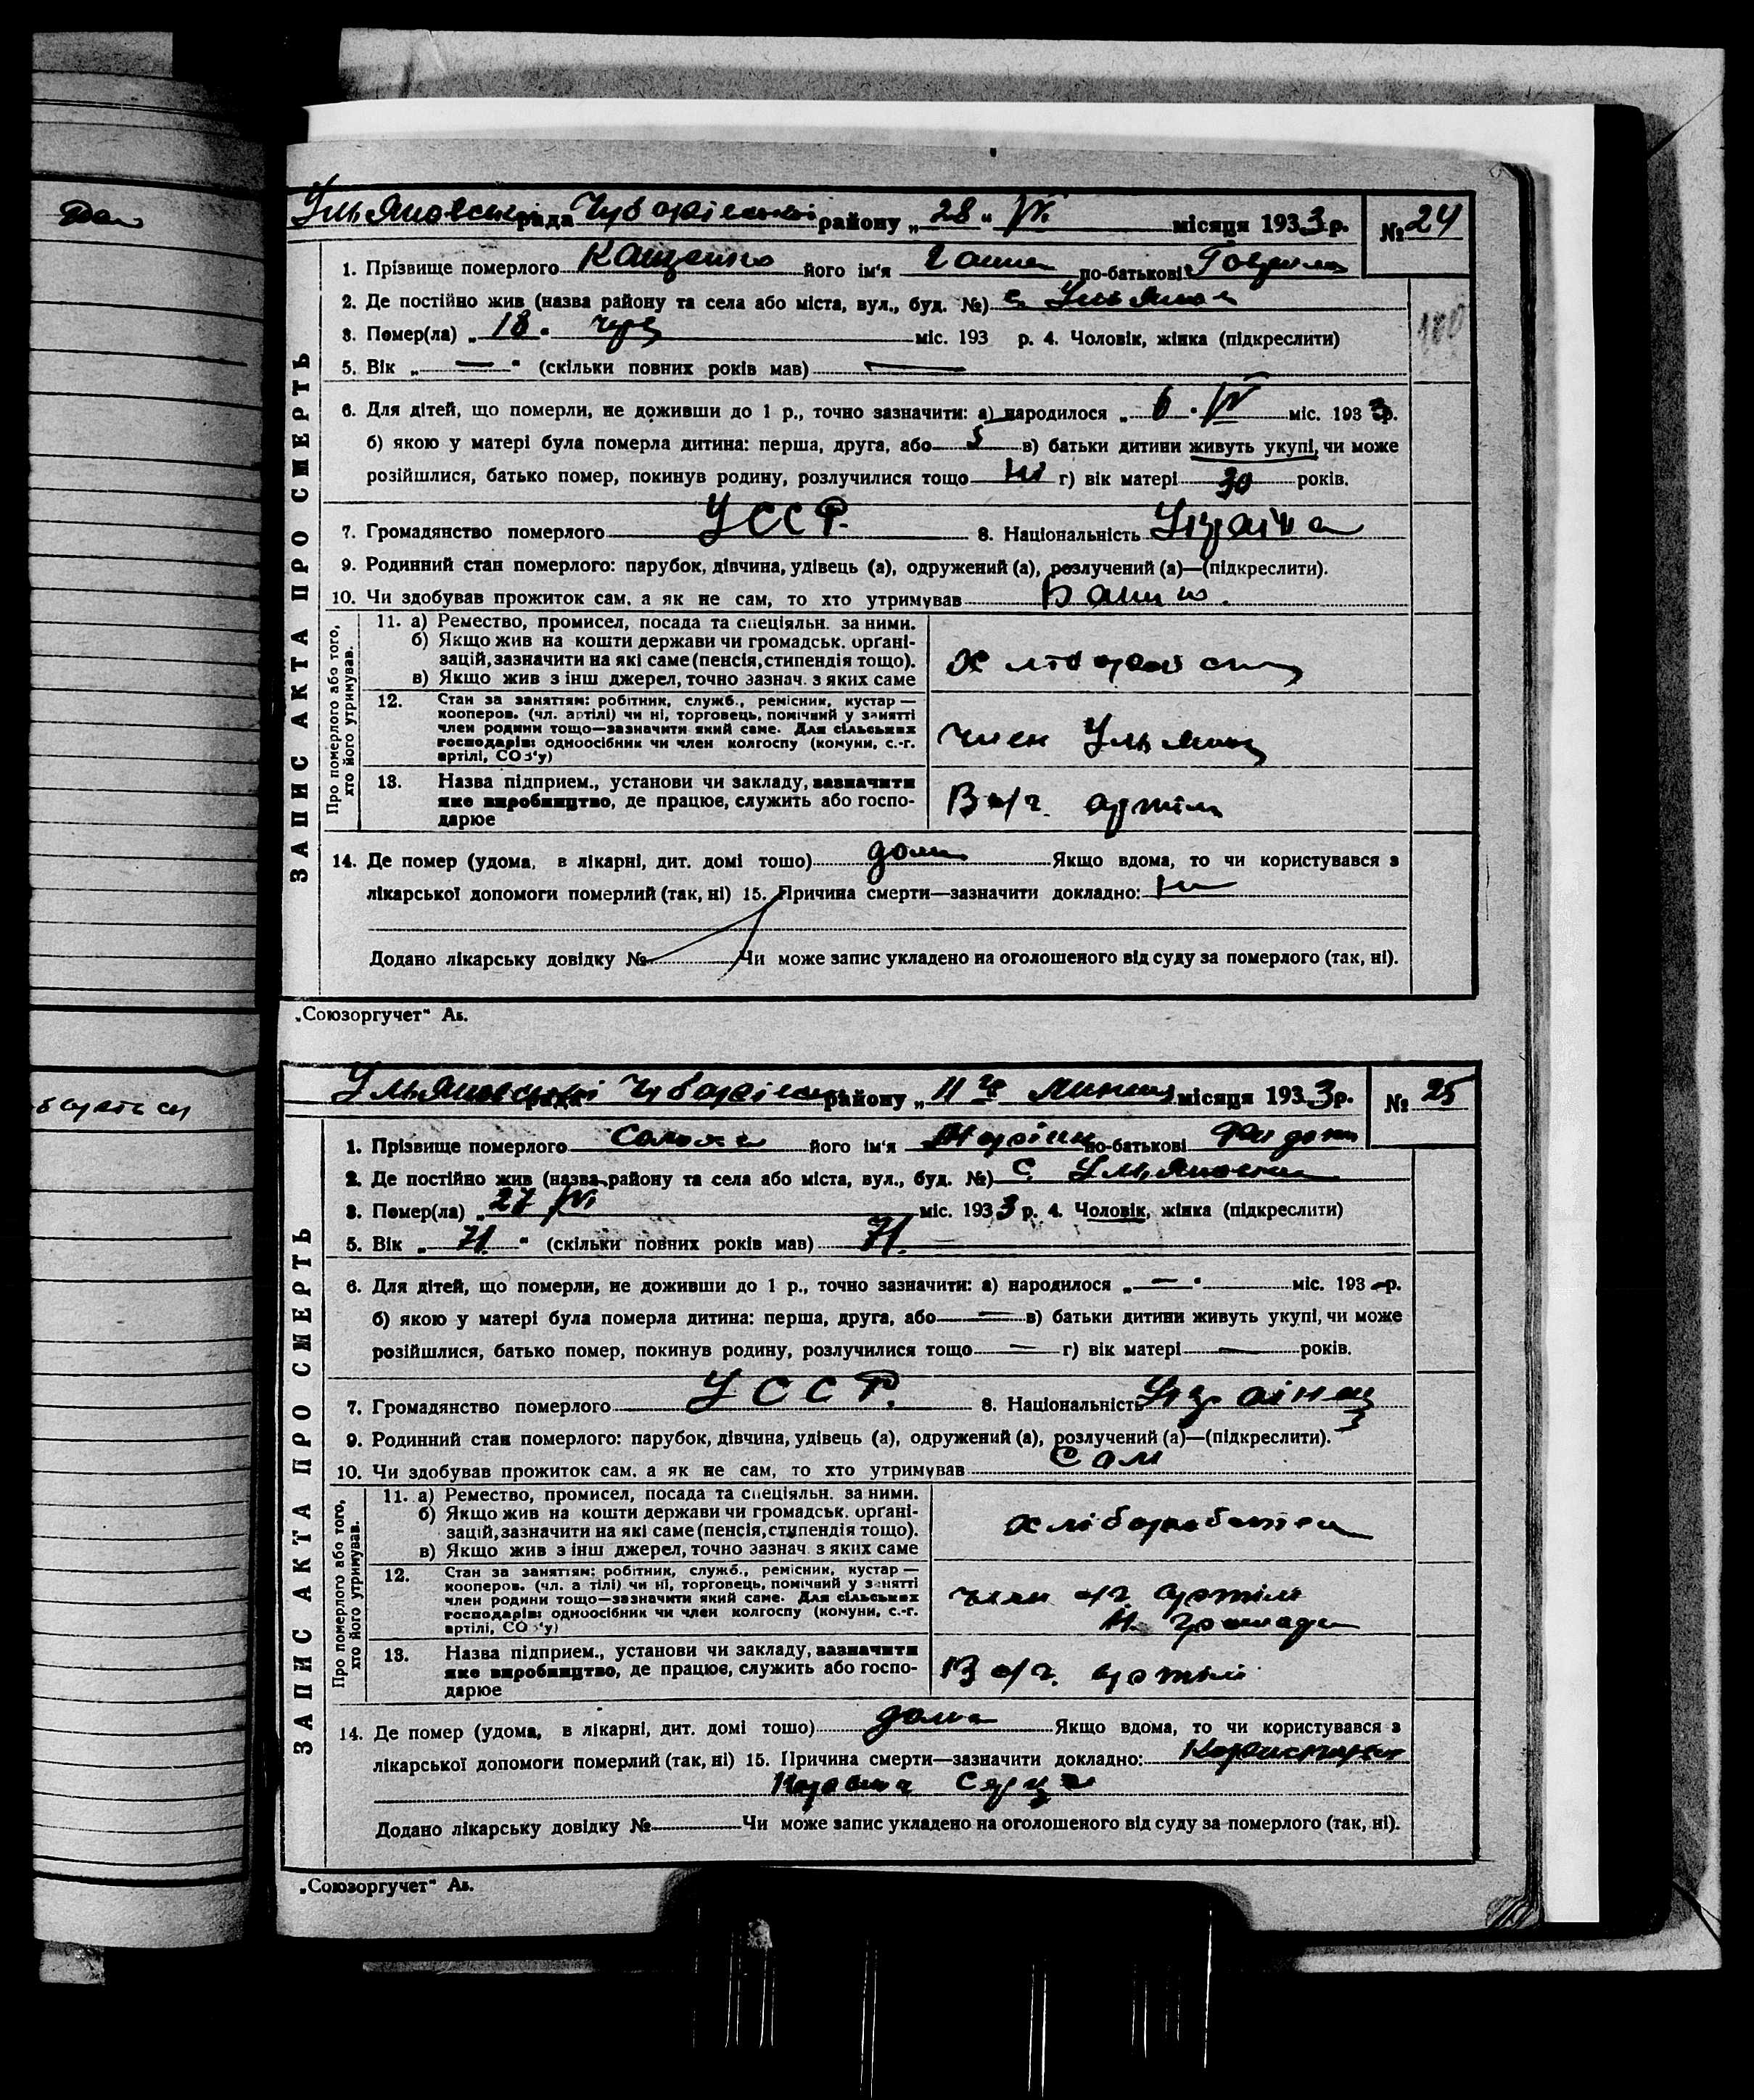 Ульяновської рада Чубарівськой району „ 28 " IV. місяця 1933 р. № 24
1. Прізвище померлого Кащенко його ім'я Ганна по-батькові
2. Де постійно жив (назва району та села або міста, вул., буд. №) с.
3. Помер(ла) „ 18 . міс. 193 р. 4. Чоловік, жінка (підкреслити)
5. Вік „ — " (скільки повних років мав) —
6. Для дітей, що померли, не доживши до 1 р., точно зазначити: а) народилося „ 6 . IV міс. 193 3 р.
б) якою у матері була померла дитина: перша, друга, або 5 в) батьки дитини живуть укупі, чи може
розійшлися, батько помер, покинув родину, розлучилися тощо ні г) вік матері 30 років.
7. Громадянство померлого УССР. 8. Національність
9. Родинний стан померлого: парубок, дівчина, удівець (а), одружений (а), розлучений (а)—(підкреслити).
10. Чи здобував прожиток сам, а як не сам, то хто утримував
ЗАПИС АКТА ПРО СМЕРТЬ
Про померлого або того, хто його утримував.
11. а) Ремество, промисел, посада та спеціяльн. за ними.
б) Якщо жив на кошти держави чи громадськ. орґані-
зацій, зазначити на які саме (пенсія, стипендія тощо).
в) Якщо жив з інш джерел, точно зазнач. з яких саме
12. Стан за заняттям: робітник, служб., ремісник, кустар —
кооперов. (чл. артілі) чи ні, торговець, помічний у занятті
член родини тощо—зазначити який саме. Для сільських
господарів: одноосібник чи член колгоспу (комуни, с.-г.
артілі, СОЗ'у)
член
13. Назва підприєм., установи чи закладу, зазначити
яке виробництво, де працює, служить або госпо-
дарює
В с/г. артіли
14. Де помер (удома, в лікарні, дит. домі тощо) дома Якщо вдома, то чи користувався з
лікарської допомоги померлий (так, ні) 15. Причина смерти—зазначити докладно: ні
Додано лікарську довідку № Чи може запис укладено на оголошеного від суду за померлого (так, ні).
„Союзоргучет" Аз.
Ульяновської рада Чубарівськ району „ 11 місяця 1933 р. № 25
1. Прізвище померлого його ім'я по-батькові
2. Де постійно жив (назва району та села або міста, вул., буд. №) с. Ульяновка
3. Помер(ла) „ 27 IV. міс. 193 3 р. 4. Чоловік, жінка (підкреслити)
5. Вік „ 71. " (скільки повних років мав) 71. —
6. Для дітей, що померли, не доживши до 1 р., точно зазначити: а) народилося „ — " міс. 193 – р.
б) якою у матері була померла дитина: перша, друга, або — в) батьки дитини живуть укупі, чи може
розійшлися, батько помер, покинув родину, розлучилися тощо — г) вік матері — років.
7. Громадянство померлого УССР. 8. Національність Українец
9. Родинний стан померлого: парубок, дівчина, удівець (а), одружений (а), розлучений (а)—(підкреслити).
10. Чи здобував прожиток сам, а як не сам, то хто утримував Сам
ЗАПИС АКТА ПРО СМЕРТЬ
Про померлого або того, хто його утримував.
11. а) Ремество, промисел, посада та спеціяльн. за ними.
б) Якщо жив на кошти держави чи громадськ. орґані-
зацій, зазначити на які саме (пенсія, стипендія тощо).
в) Якщо жив з інш джерел, точно зазнач. з яких саме
12. Стан за заняттям: робітник, служб., ремісник, кустар —
кооперов. (чл. артілі) чи ні, торговець, помічний у занятті
член родини тощо—зазначити який саме. Для сільських
господарів: одноосібник чи член колгоспу (комуни, с.-г.
артілі, СОЗ'у)
член с/г артілі
Н. Громада
13. Назва підприєм., установи чи закладу, зазначити
яке виробництво, де працює, служить або госпо-
дарює
В с/г. артілі
14. Де помер (удома, в лікарні, дит. домі тощо) дома Якщо вдома, то чи користувався з
лікарської допомоги померлий (так, ні) 15. Причина смерти—зазначити докладно:
Додано лікарську довідку № Чи може запис укладено на оголошеного від суду за померлого (так, ні).
„Союзоргучет" Аз.